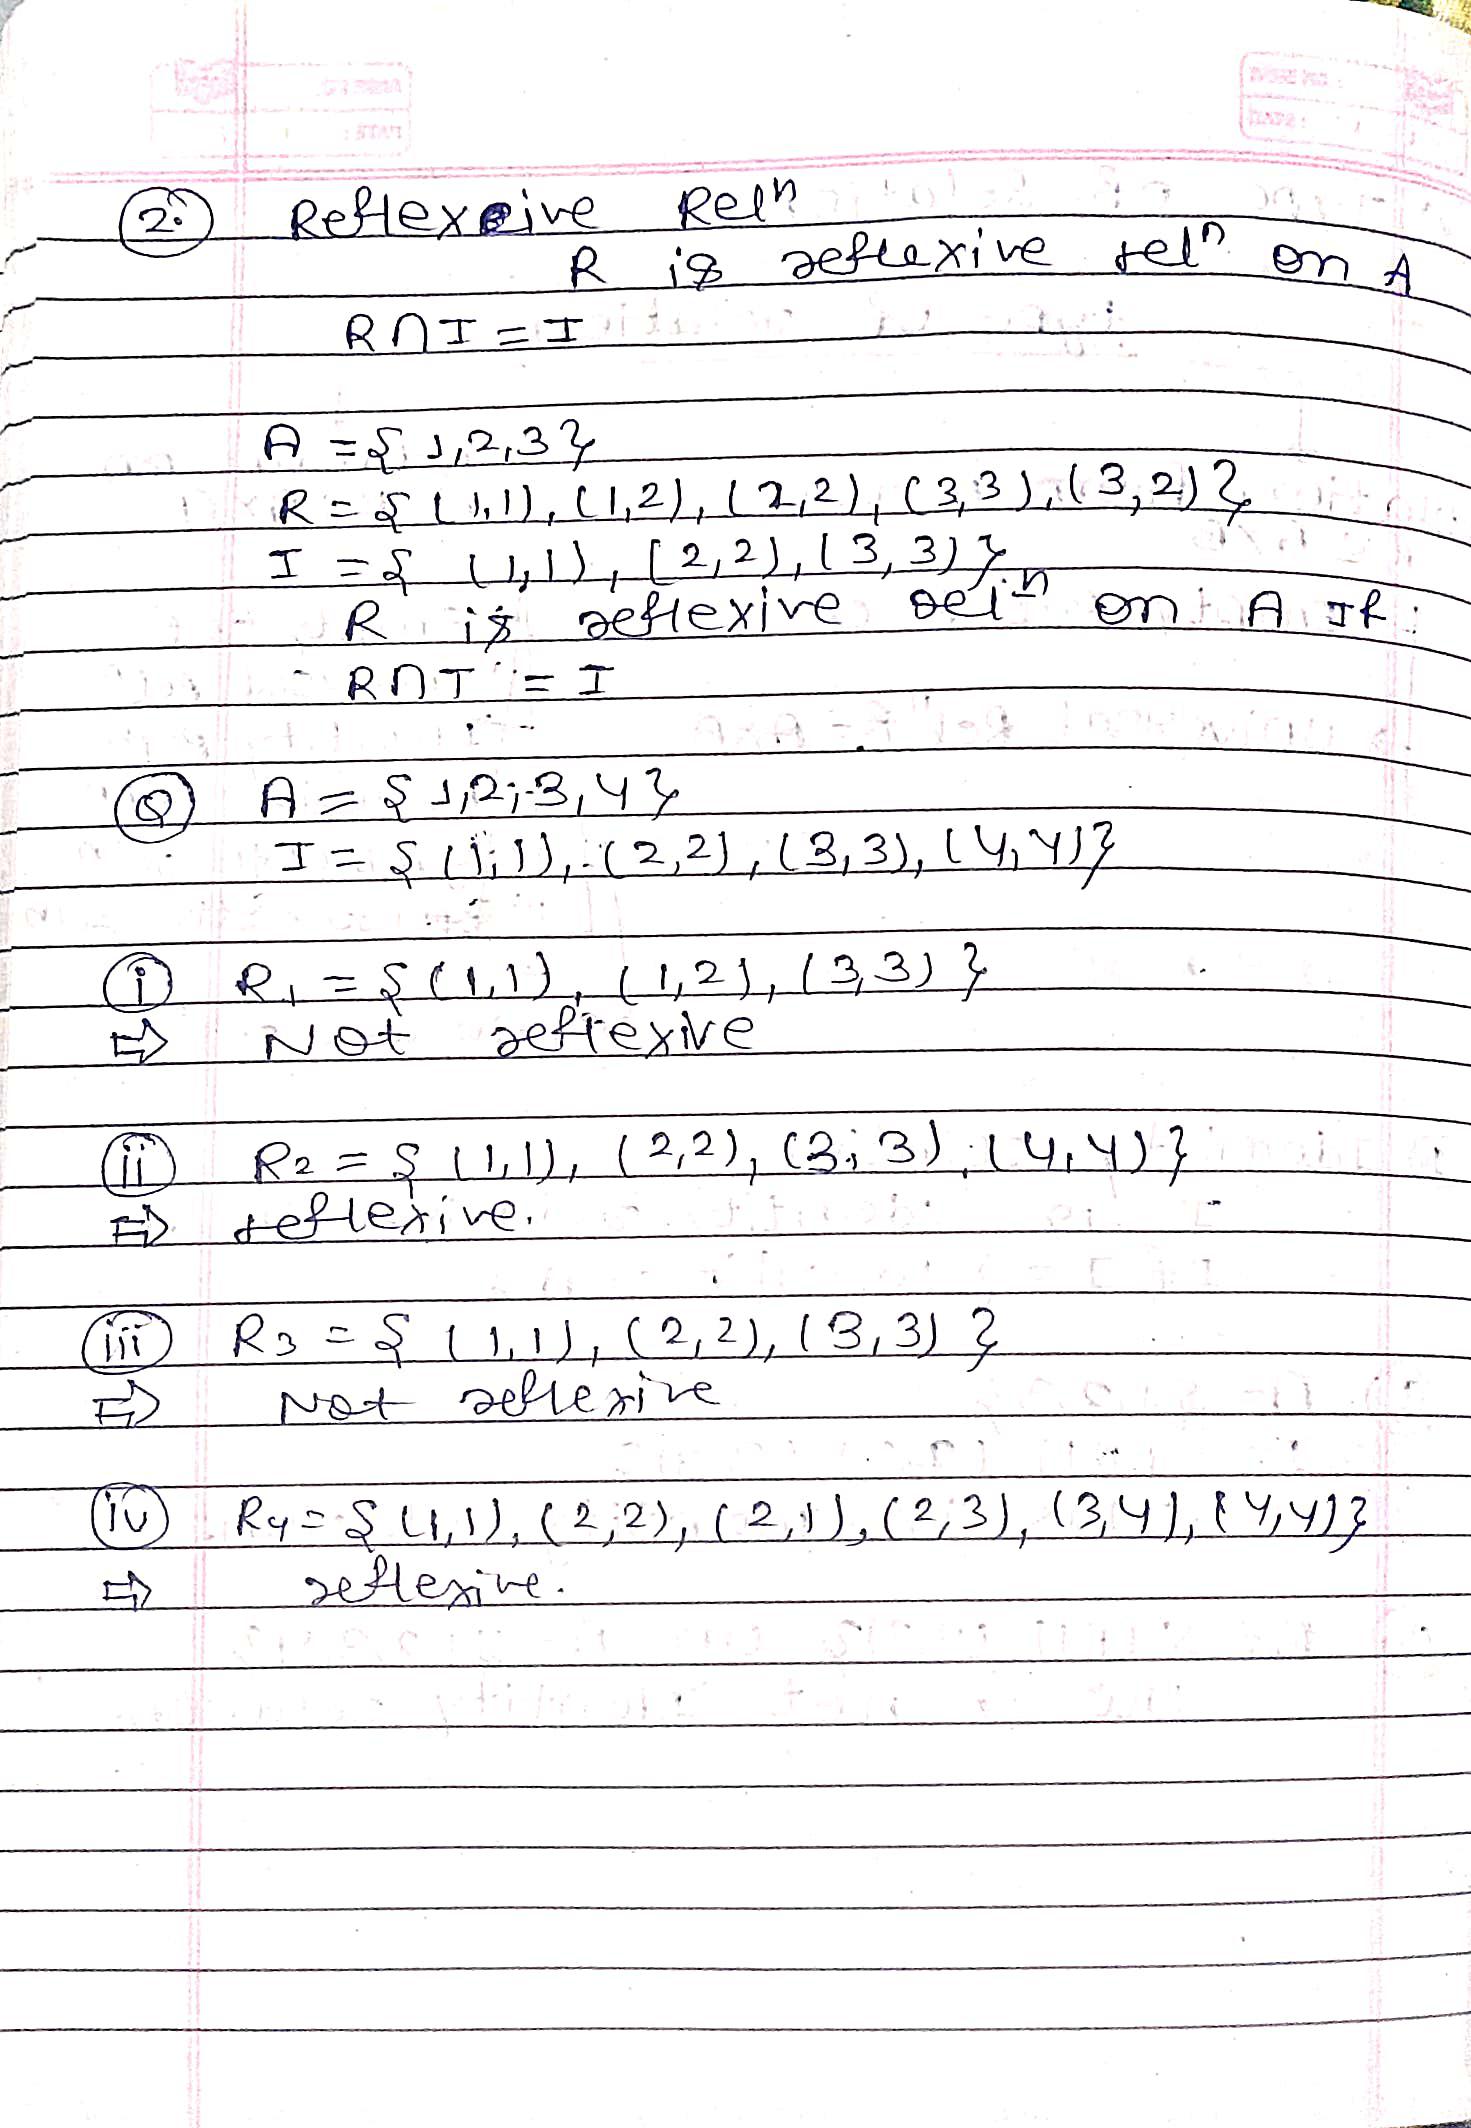 2. Reflexive Relⁿ
R is reflexive relⁿ on A
R∩I = I
A = {1,2,3}
R = {(1,1), (1,2), (2,2), (3,3), (3,2)}
I = {(1,1), (2,2), (3,3)}
R is reflexive relⁿ on A If
R∩I = I
Q A = {1,2,3,4}
I = {(1,1), (2,2), (3,3), (4,4)}
i R1 = {(1,1), (1,2), (3,3)}
⇒ Not reflexive
ii R2 = {(1,1), (2,2), (3,3), (4,4)}
⇒ reflexive.
iii R3 = {(1,1), (2,2), (3,3)}
⇒ Not reflexive
iv R4 = {(1,1), (2,2), (2,1), (2,3), (3,4), (4,4)}
⇒ reflexive.